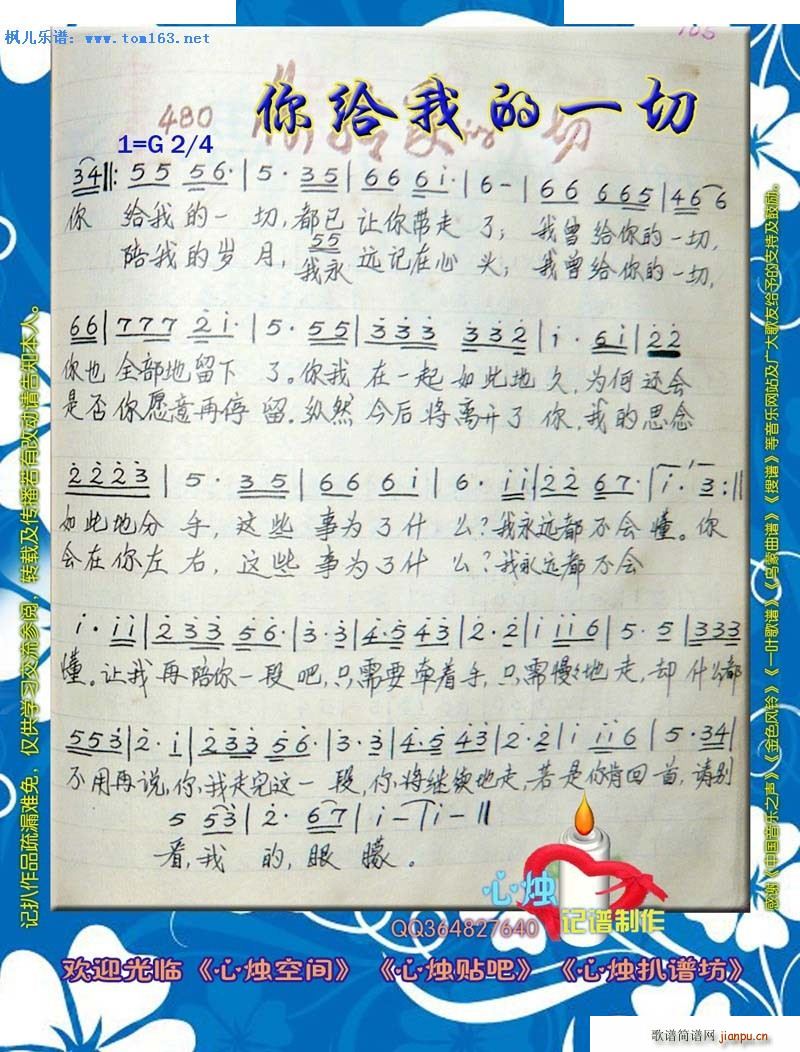 枫儿乐谱：www.tom163.net
105
480 你给我的一切
1=G 2/4
34 ‖: 55 56· | 5· 35 | 66 6i· | 6- | 66 665 | 466
你 给我的一 切，都已 让你带走 了；我曾给你的一切，
55
陪我的岁 月，我永 远记在心 头；我曾给你的一切，
66 | 777 2i· | 5· 55 | 333 332 | i· 6i | 22
你也 全部地留下 了。你我 在一起如此地 久，为何还会
是否 你愿意再停 留。纵然 今后将离开了 你，我的思念
2223 | 5· 35 | 66 6i | 6· ii | 22 67· | i· 3 :‖
如此地分 手，这些 事为了什 么？我永远都不会 懂。你
会在你左 右，这些 事为了什 么？我永远都不会
i· ii | 233 56· | 3·3 | 4·5 43 | 2·2 | i ii6 | 5·5 | 333
懂。让我 再陪你一段 吧，只需要牵着手，只需慢々地走，却什么都
553 | 2·i | 233 56· | 3·3 | 4·5 43 | 2·2 | i ii6 | 5·34
不用再说，你，我走完这一段，你，将继续地走，若是你肯回首，请别
5 53 | 2· 67 | i- | i- ‖
看，我 的，眼 朦。
心烛
QQ364827640 记谱制作
欢迎光临《心烛空间》《心烛贴吧》《心烛扒谱坊》
记扒作品疏漏难免，仅供学习交流参阅，转载及传播若有改动请告知本人。
感谢《中国音乐之声》《金色风铃》《一叶歌谱》《乌蒙曲谱》《搜谱》等音乐网站及广大歌友给予的支持及鼓励。
歌谱简谱网
jianpu.cn